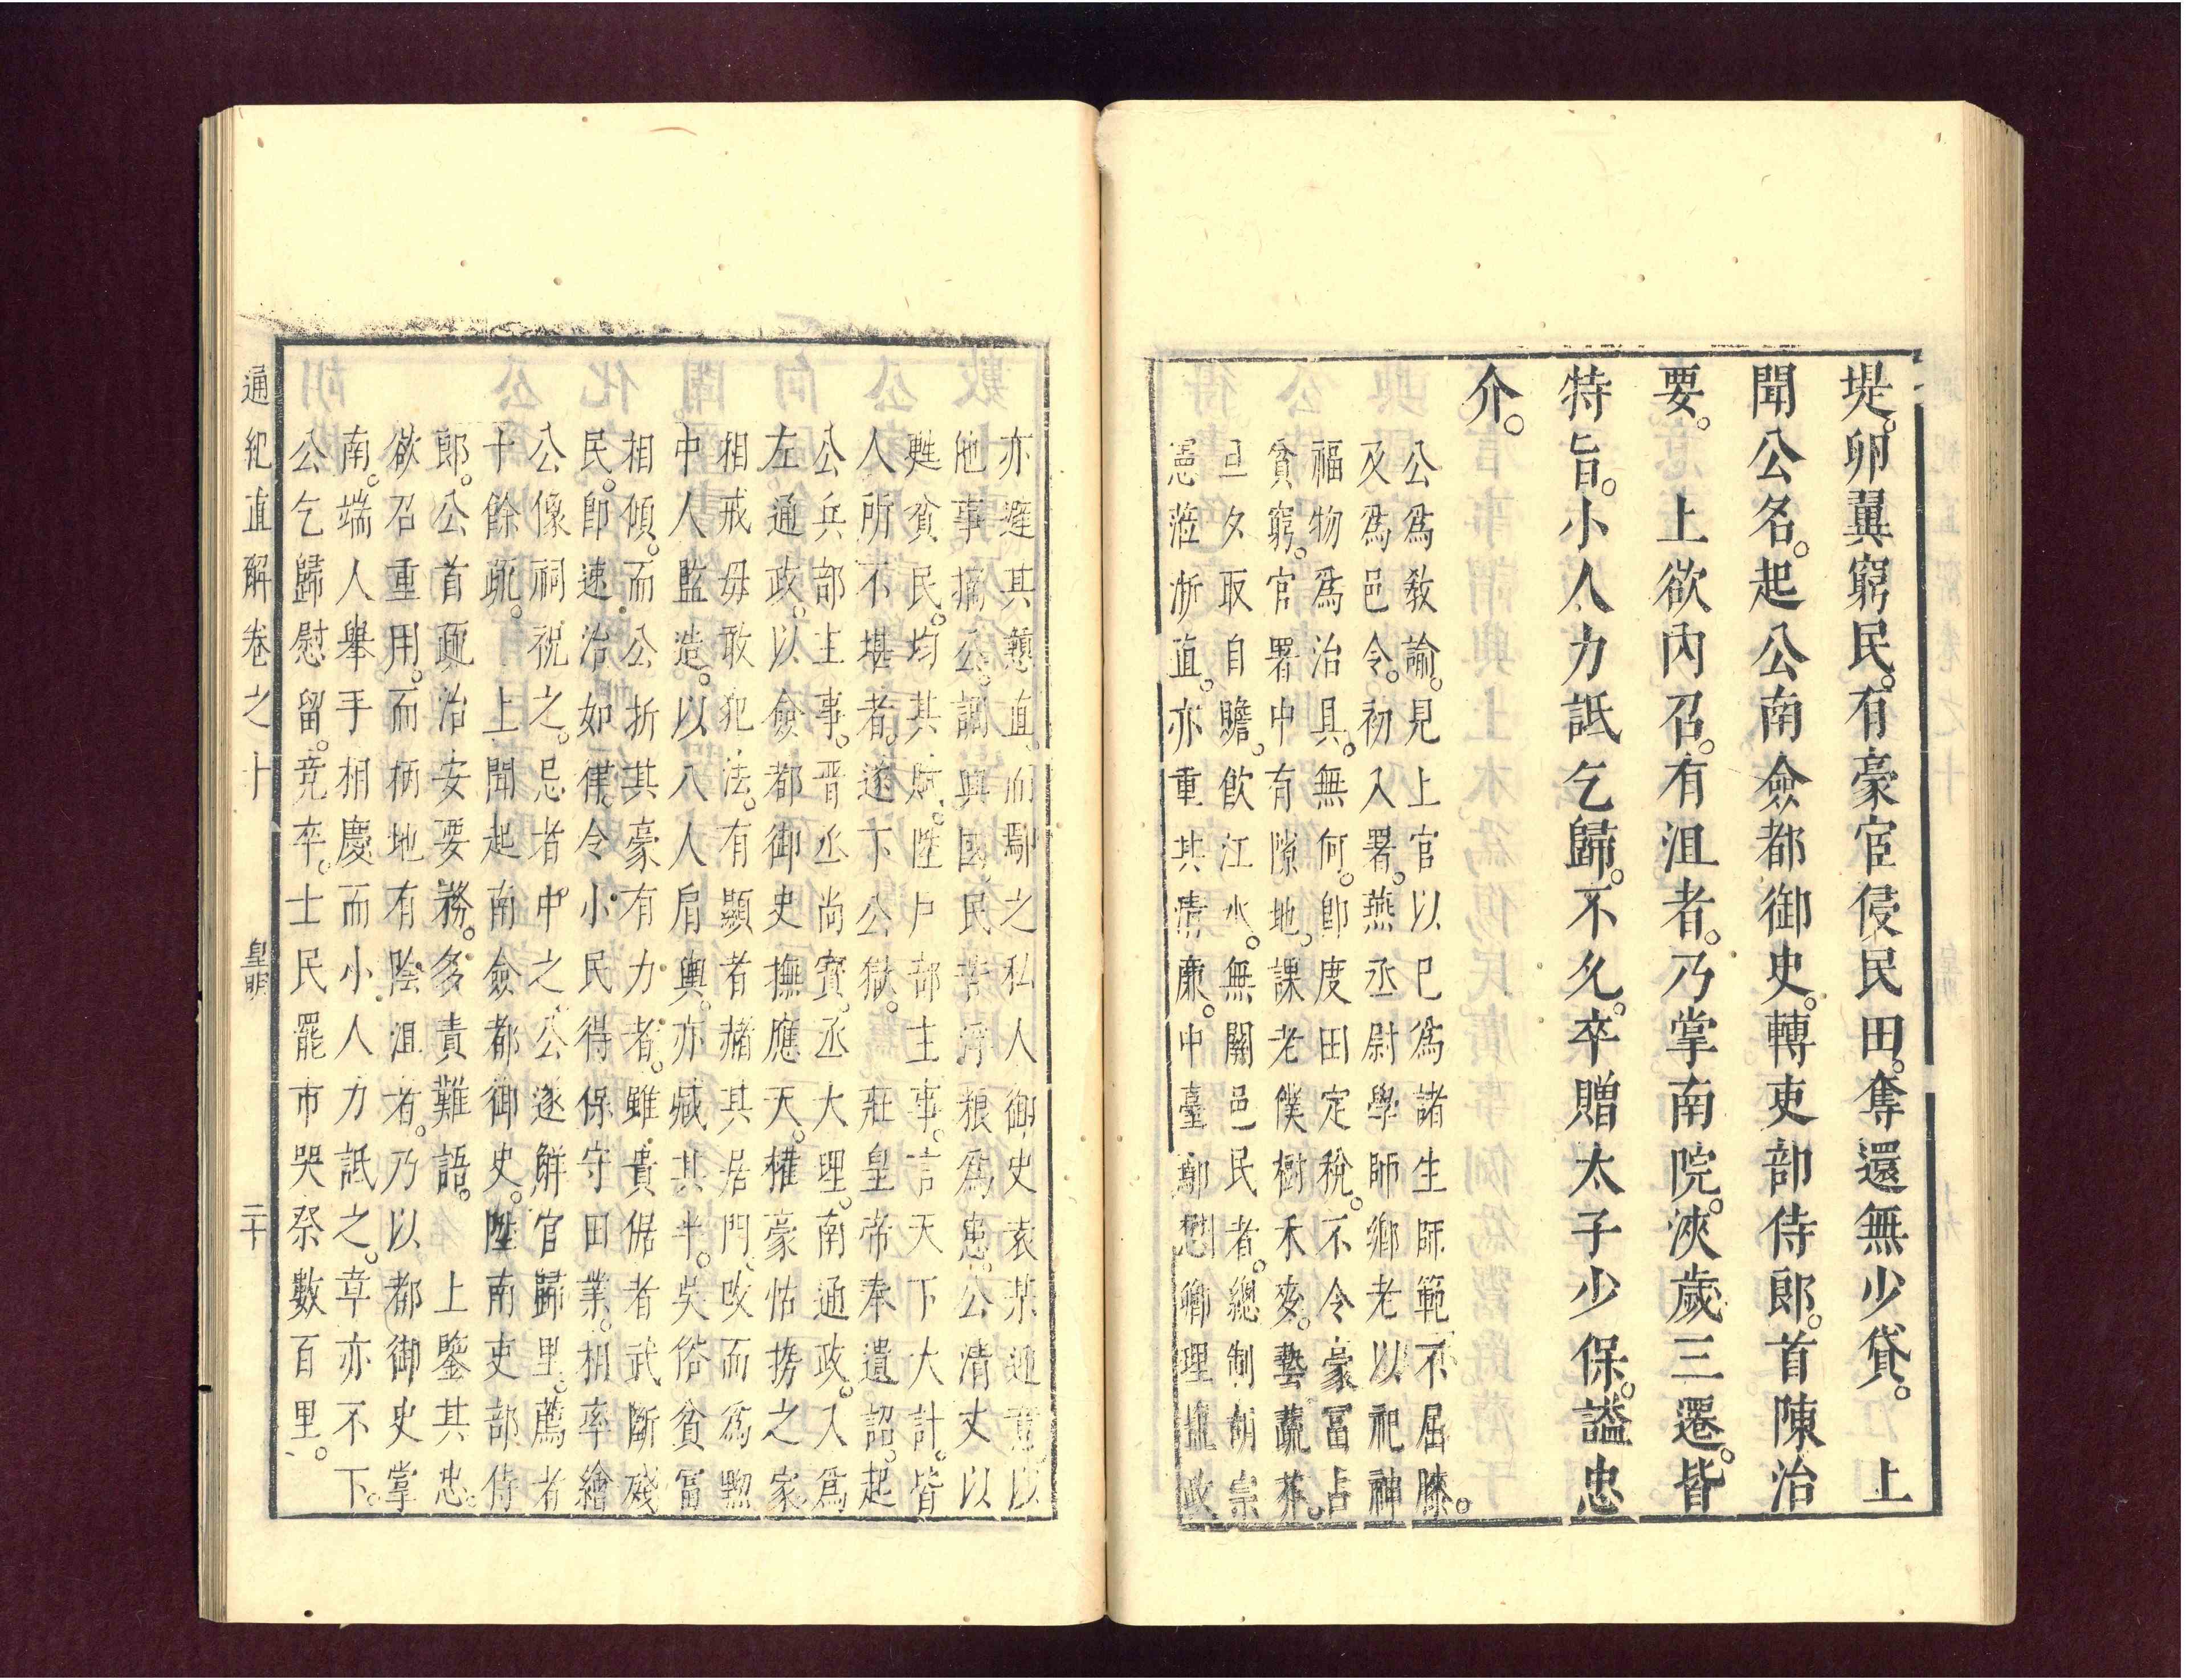 堤。卵翼窮民。有豪宦侵民田。奪還無少貸。　上
聞公名。起公南僉都御史。轉吏部侍郎。首陳治
要。　上欲內召。有沮者。乃掌南院。浹歲三遷。皆
特旨。小人力詆乞歸。不久。卒贈太子少保。謚忠
介。
公爲敎諭。見上官以巳爲諸生師範不屈膝。
及爲邑令。初入署。燕丞尉學師鄉老以祀神
福物爲治具。無何。卽度田定稅。不令豪冨占
貧窮。官署中有隙地。課老僕樹禾麥。藝蔬茶。
旦夕取自贍。飮江水。無關邑民者。總制胡宗
憲蒞浙直。亦重其淸廉。中臺鄢懋卿理塩政
亦避其戇直而鄢之私人御史袁某迎意以
他事搆公。謫興國。民苦浮粮爲患。公淸丈以
甦貧民。均其賦。陞戶部主事。言天下大計。皆
人所不堪者。遂下公獄。　莊皇帝奉遺詔。起
公兵部主事。晋丞尙寳。丞大理。南通政。入爲
左通政。以僉都御史撫應天。權豪怙勢之家
相戒毋敢犯法。有顯者赭其居門。改而爲黝
中人監造。以八人肩輿。亦減其半。吳俗貧冨
相傾。而公折其豪有力者。雖貴倨者武斷殘
民。卽速治如律。令小民得保守田業。相率繪
公像祠祝之。忌者中之。公遂解官歸里。薦者
十餘疏。　上聞起南僉都御史。陞南吏部侍
郎。公首疏治安要務。多責難語。　上鑒其忠。
欲召重用。而柄地有陰沮者。乃以都御史掌
南。端人舉手相慶而小人力詆之。章亦不下。
公乞歸慰留。竟卒。士民罷市哭祭數百里。
通紀直解卷之十　皇明　二十